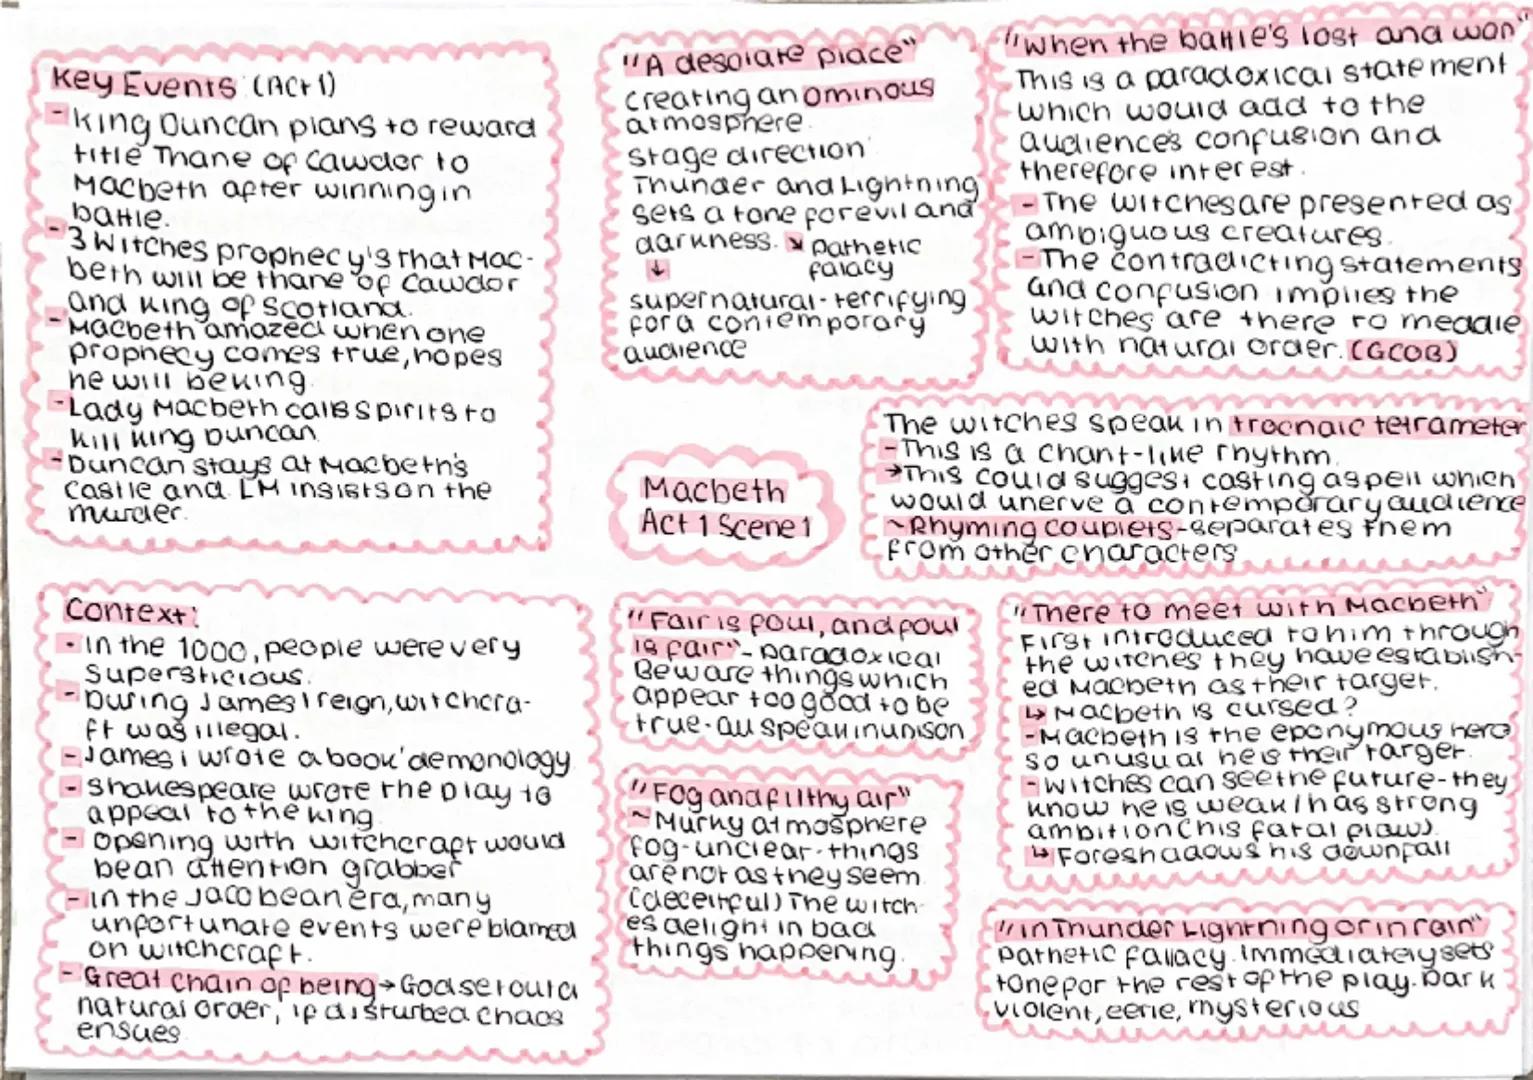 Key Events (Act 1)
- King Duncan plans to reward
title Thane of Cawdor to
Macbeth after winning in
battle.
- 3 Witches prophecy's that Mac-
beth will be thane of Cawdor
and King of Scotland.
- Macbeth amazed when one
prophecy comes true, hopes
he will be king
- Lady Macbeth calls spirits to
kill King Duncan
- Duncan stays at Macbeth's
Castle and LM insists on the
murder.
"A desolate place"
creating an ominous
atmosphere.
stage direction
Thunder and Lightning
sets a tone for evil and
darkness. ↘ pathetic
↓ falacy
supernatural - terrifying
for a contemporary
audience
"When the battle's lost and won"
This is a paradoxical statement
which would add to the
audiences confusion and
therefore interest.
- The witches are presented as
ambiguous creatures.
- The contradicting statements
and confusion implies the
witches are there to meddle
with natural order. (GCOB)
The witches speak in trochaic tetrameter
- This is a chant-like rhythm.
→ This could suggest casting a spell which
would unerve a contemporary audience
~ Rhyming couplets - separates them
from other characters
Macbeth
Act 1 Scene 1
Context:
- in the 1000, people were very
supersticious.
- During James I reign, witchcra-
ft was illegal.
- James i wrote a book 'demonology
- Shakespeare wrote the play to
appeal to the king
- opening with witchcraft would
bean attention grabber
- in the Jacobean era, many
unfortunate events were blamed
on witchcraft.
- Great chain of being → God set out a
natural order, if disturbed chaos
ensues.
"Fair is foul, and foul
is fair" - paradoxical
Beware things which
appear too good to be
true - all speak in unison
"Fog and filthy air"
~ Murky atmosphere
fog - unclear - things
are not as they seem.
(deceitful) The witch-
es delight in bad
things happening.
"There to meet with Macbeth"
First introduced to him through
the witches they have establish-
ed Macbeth as their target.
↳ Macbeth is cursed?
- Macbeth is the eponymous hero
so unusual he is their target.
- Witches can see the future - they
know he is weak / has strong
ambition (his fatal flaw).
↳ Foreshadows his downfall
"in Thunder Lightning or in rain"
pathetic fallacy. immediately sets
tone for the rest of the play. Dark
violent, eerie, mysterious